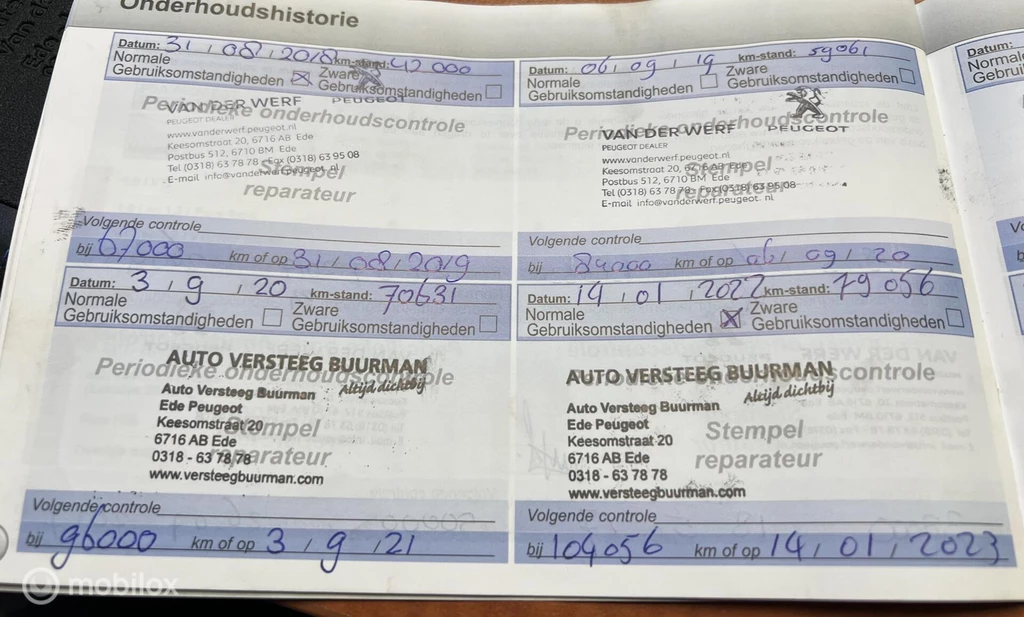 Onderhoudshistorie
Datum: 31 / 08 / 2018 km-stand: 42 000
Normale
Gebruiksomstandigheden ☒ Zware Gebruiksomstandigheden ☐
Periodieke onderhoudscontrole
VAN DER WERF PEUGEOT
PEUGEOT DEALER
www.vanderwerf.peugeot.nl
Keesomstraat 20, 6716 AB Ede
Postbus 512, 6710 BM Ede
Tel (0318) 63 78 78 Fax (0318) 63 95 08
E-mail info@vanderwerf.peugeot.nl
Stempel
reparateur
Volgende controle
bij 67000 km of op 31 / 08 / 2019
Datum: 06 / 09 / 19 km-stand: 59061
Normale
Gebruiksomstandigheden ☐ Zware Gebruiksomstandigheden ☐
Periodieke onderhoudscontrole
VAN DER WERF PEUGEOT
PEUGEOT DEALER
www.vanderwerf.peugeot.nl
Keesomstraat 20, 6716 AB Ede
Postbus 512, 6710 BM Ede
Tel (0318) 63 78 78 Fax (0318) 63 95 08
E-mail info@vanderwerf.peugeot.nl
Stempel
reparateur
Volgende controle
bij 84000 km of op 06 / 09 / 20
Datum: 3 / 9 / 20 km-stand: 70631
Normale
Gebruiksomstandigheden ☐ Zware Gebruiksomstandigheden ☐
Periodieke onderhoudscontrole
AUTO VERSTEEG BUURMAN
Altijd dichtbij
Auto Versteeg Buurman
Ede Peugeot
Keesomstraat 20
6716 AB Ede
0318 - 63 78 78
www.versteegbuurman.com
Stempel
reparateur
Volgende controle
bij 96000 km of op 3 / 9 / 21
Datum: 14 / 01 / 2022 km-stand: 79 056
Normale
Gebruiksomstandigheden ☒ Zware Gebruiksomstandigheden ☐
Periodieke onderhoudscontrole
AUTO VERSTEEG BUURMAN
Altijd dichtbij
Auto Versteeg Buurman
Ede Peugeot
Keesomstraat 20
6716 AB Ede
0318 - 63 78 78
www.versteegbuurman.com
Stempel
reparateur
Volgende controle
bij 104056 km of op 14 / 01 / 2023
Datum:
mobilox